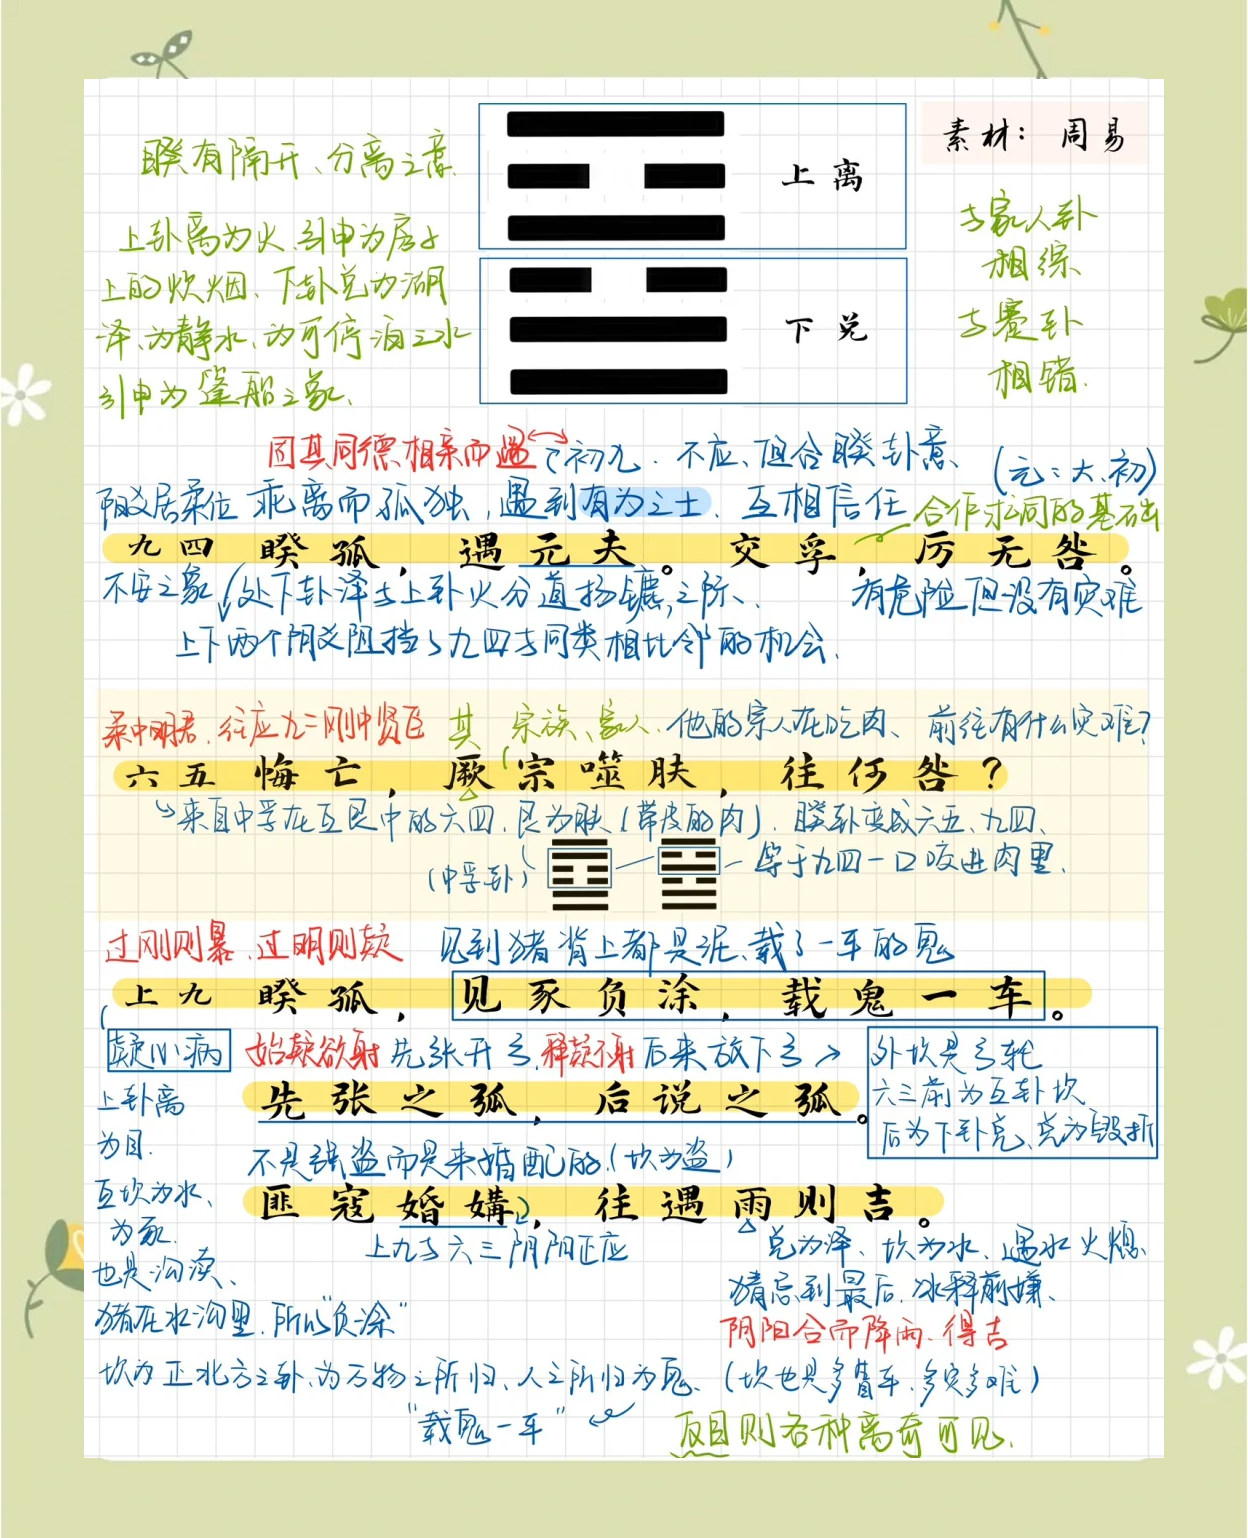 素材：周易
睽有隔开、分离之意.
上离
上卦离为火、引申为房子
上的炊烟、下卦兑为湖
泽、为静水、为可停泊之水
引申为篷船之象、
下兑
与家人卦
相综、
与蹇卦
相错.
因其同德相亲而遇 初九. 不应、但合睽卦意、 (元：大、初)
阳爻居柔位 乖离而孤独，遇到有为之士. 互相信任 合作求同的基础
九四 睽孤，遇元夫。交孚，厉无咎。
不安之象 处下卦泽与上卦火分道扬镳之际、. 有危险但没有灾难
上下两个阴爻阻挡了九四与同类相比邻的机会.
柔中明君、往应九二刚中贤臣 其 宗族、家人. 他的宗人在吃肉、前往有什么灾难？
六五 悔亡，厥宗噬肤，往何咎？
来自中孚在互艮中的六四.艮为肤(带皮的肉). 睽卦变成六五、九四、
(中孚卦) 等于九四一口咬进肉里.
过刚则暴、过明则疑 见到猪背上都是泥、载了一车的鬼
上九 睽孤，见豕负涂，载鬼一车。
疑心病 始疑欲射 先张开弓.释疑不射 后来放下弓→
外坎是弓轮
六三前为互卦坎
后为下卦兑、兑为毁折
先张之弧，后说之弧。
上卦离
为目.
不是强盗而是来婚配的(坎为盗)
匪寇婚媾，往遇雨则吉。
互坎为水、
为豕.
也是沟渎、
猪在水沟里.所以“负涂”
上九与六三阴阳正应
兑为泽、坎为水、遇水火熄、
猜忌到最后.冰释前嫌、
阴阳合而降雨.得吉
坎为正北方之卦、为万物之所归、人之所归为鬼. (坎也是多眚车.多灾多难)
“载鬼一车”
反目则各种离奇可见.